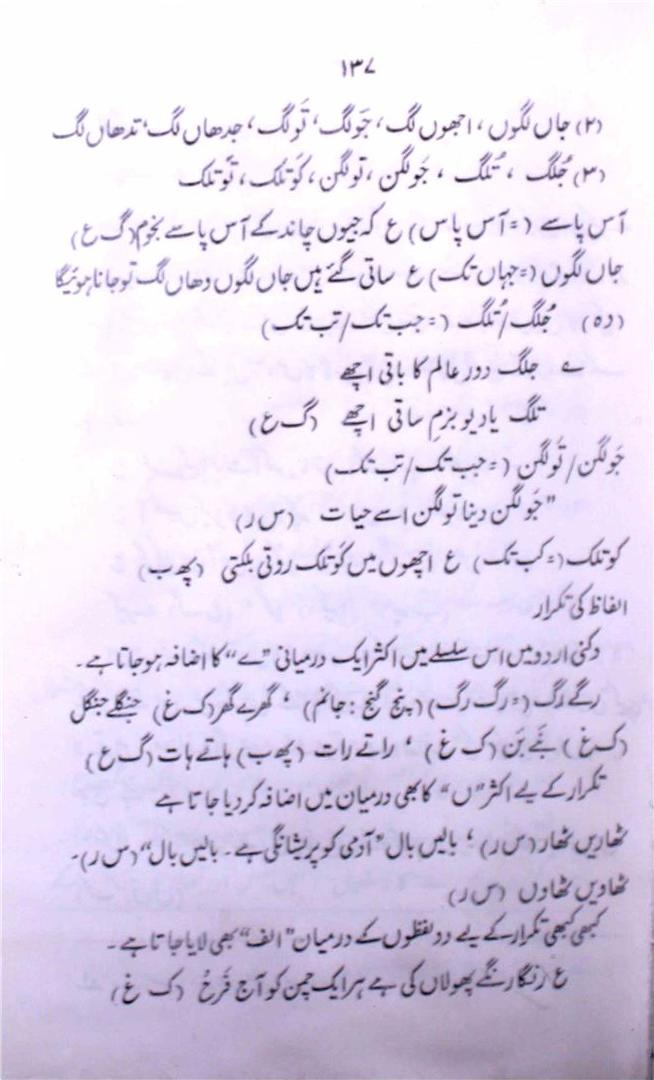 ۱۳۷
(۲) جاں لگوں ، اجھوں لگ، جَولگ، تَولگ ، جدھاں لگ، تدھاں لگ
(۳) جُلگ ، تُلگ ، جَولگن ، تولگن ، کَوتلک ، تَوتلک
آس پاسے (= آس پاس) ع کہ جیوں چاند کے آس پاسے نجوم (گ ع)
جاں لگوں (= جہاں تک) ع ساتی گئے ہیں جاں لگوں وھاں لگ توجانا ہوئیگا
(دہ) جُلگ / تُلگ (= جب تک / تب تک)
ے جلگ دور عالم کا باقی اچھے
تلگ یادیو بزمِ ساقی اچھے (گ ع)
جَولگن / تَولگن (= جب تک / تب تک)
"جَولگن دینا تولگن اسے حیات (س ر)
کوتلک (= کب تک) ع اچھوں میں کَوتلک روتی بلکتی (پھ ب)
الفاظ کی تکرار
دکنی اردو میں اس سلسلے میں اکثر ایک درمیانی "ے" کا اضافہ ہو جاتا ہے۔
رگے رگ (= رگ رگ) (پنج گنج : جانم) ؛ گھرے گھر (ک غ) جنگلے جنگل
(ک غ) بَنے بَن (ک غ) ؛ راتے رات (پھ ب) ہاتے ہات (گ ع)
تکرار کے لیے اکثر "ں" کا بھی درمیان میں اضافہ کر دیا جاتا ہے
ٹھاریں ٹھار (س ر) ؛ بالیں بال "آدمی کو پریشانگی ہے۔ بالیں بال" (س ر)۔
ٹھاویں ٹھاوں (س ر)
کبھی کبھی تکرار کے لیے دو لفظوں کے درمیان "الف" بھی لایا جاتا ہے۔
ع رنگا رنگے پھولاں کی ہے ہر ایک چمن کو آج فَرحُ (ک غ)